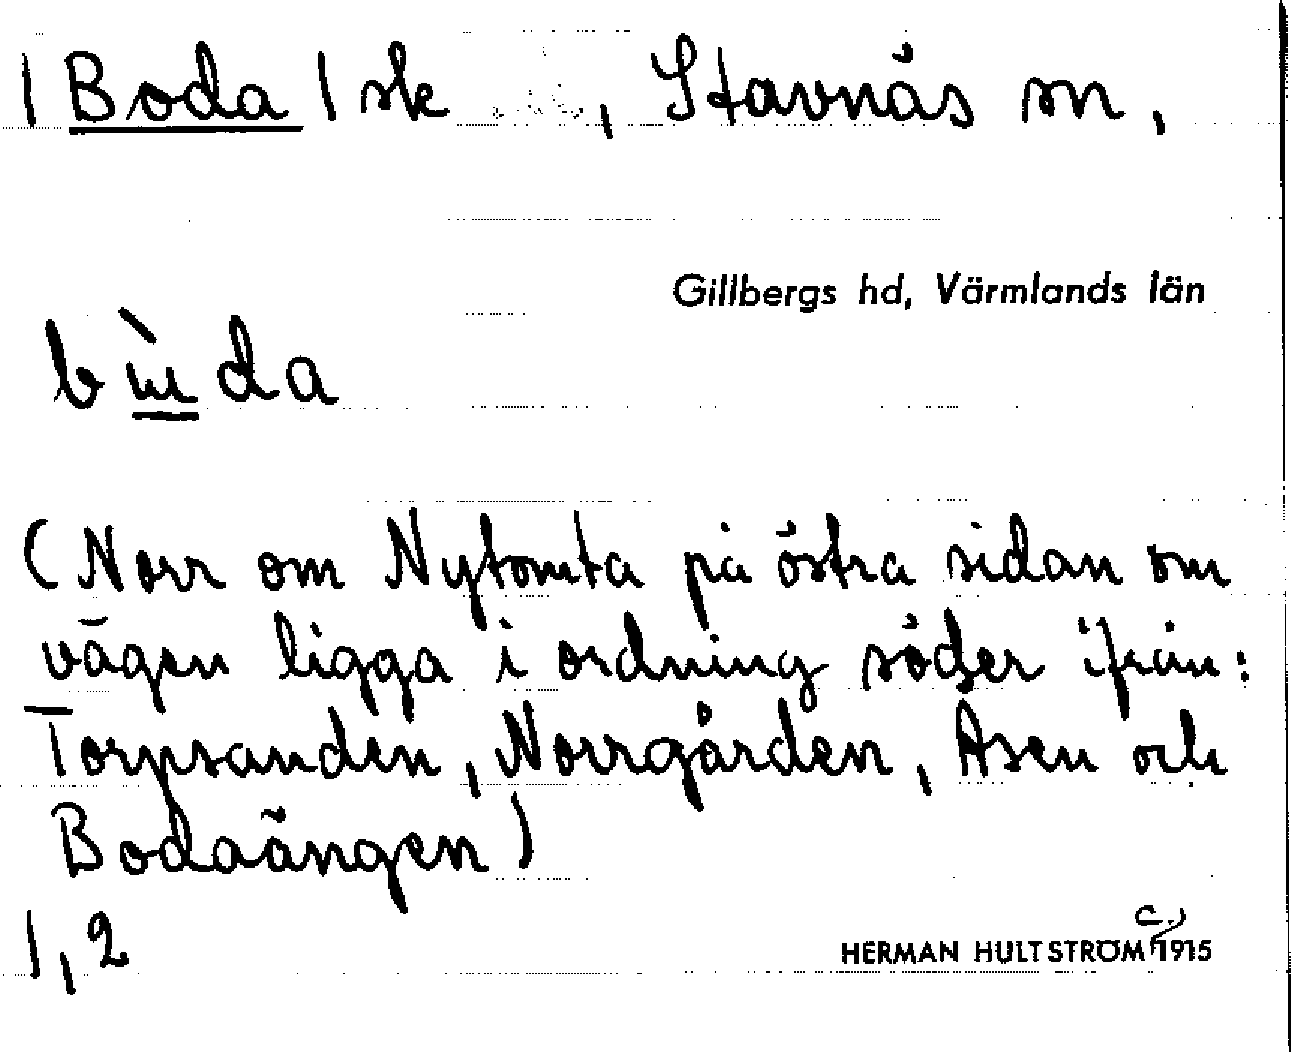 | Boda | sk , Stavnäs sn ,
Gillbergs hd, Värmlands län
(Norr om Nytomta på östra sidan om
vägen ligga i ordning söder ifrån:
Torpsanden, Norrgården, Åsen och
Bodaängen)
1,2
HERMAN HULTSTRÖM c.) 1915